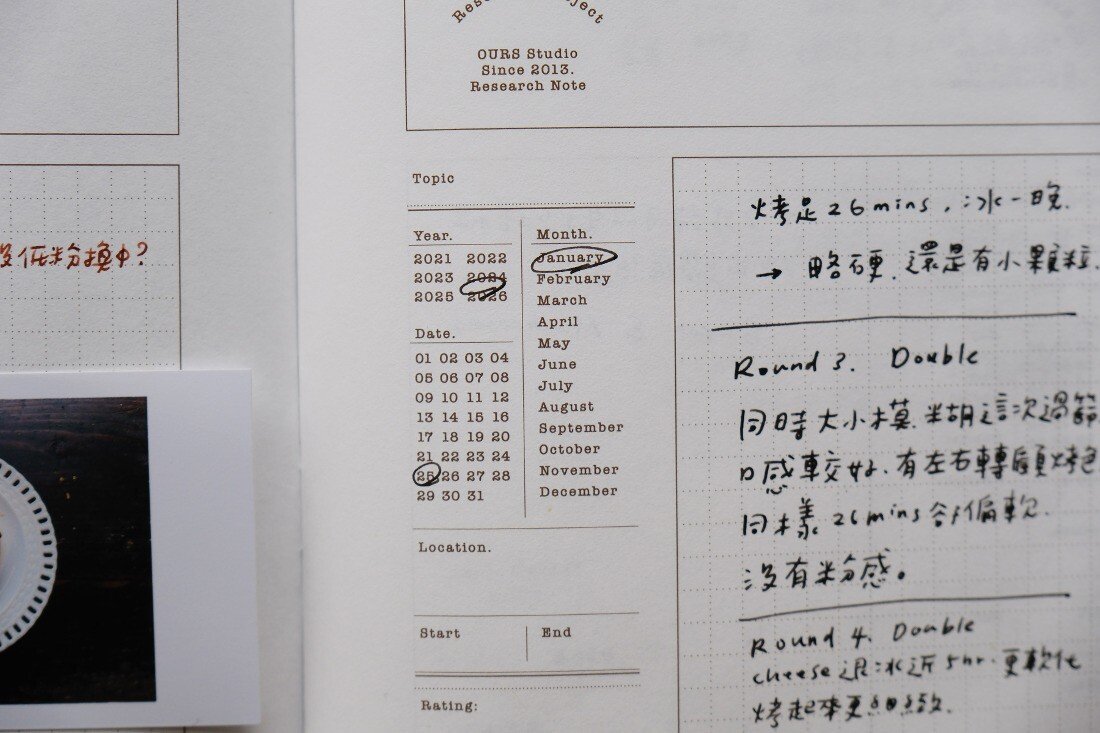 Research Project
OURS Studio
Since 2013.
Research Note
沒低粉換中?
Topic
Year.
2021 2022
2023 2024
2025 2026
Date.
01 02 03 04
05 06 07 08
09 10 11 12
13 14 15 16
17 18 19 20
21 22 23 24
25 26 27 28
29 30 31
Month.
January
February
March
April
May
June
July
August
September
October
November
December
Location.
Start
End
Rating:
烤足26mins,冰一晚.
→ 略硬,還是有小顆粒.
Round 3. Double
同時大小模.糊這次過篩
口感較好.有左右轉頭烤色
同樣26mins卻偏軟.
沒有粉感。
Round 4. Double
cheese退冰近5hr.更軟化
烤起來更細緻.